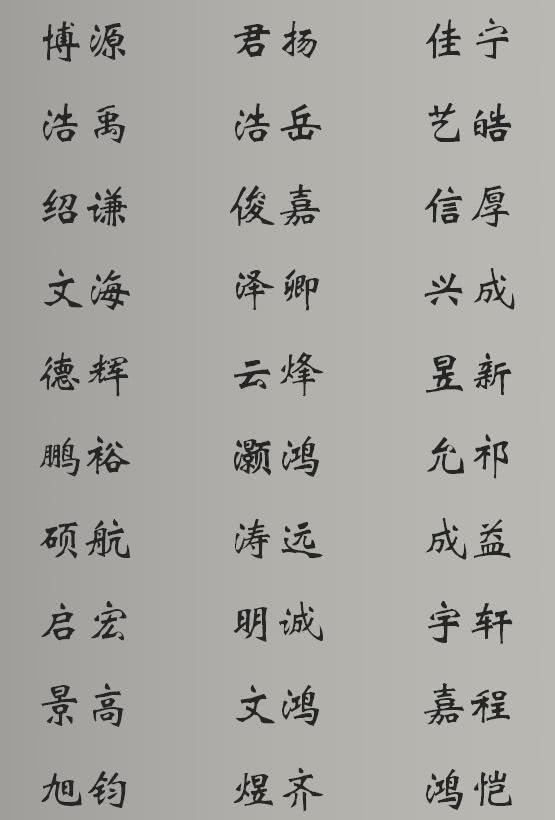 博源 君扬 佳宁
浩禹 浩岳 艺皓
绍谦 俊嘉 信厚
文海 泽卿 兴成
德辉 云烽 昱新
鹏裕 灏鸿 允祁
硕航 涛远 成益
启宏 明诚 宇轩
景高 文鸿 嘉程
旭钧 煜齐 鸿恺